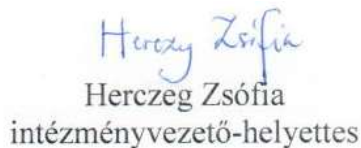 Herczeg Zsófia
Herczeg Zsófia
intézményvezető-helyettes